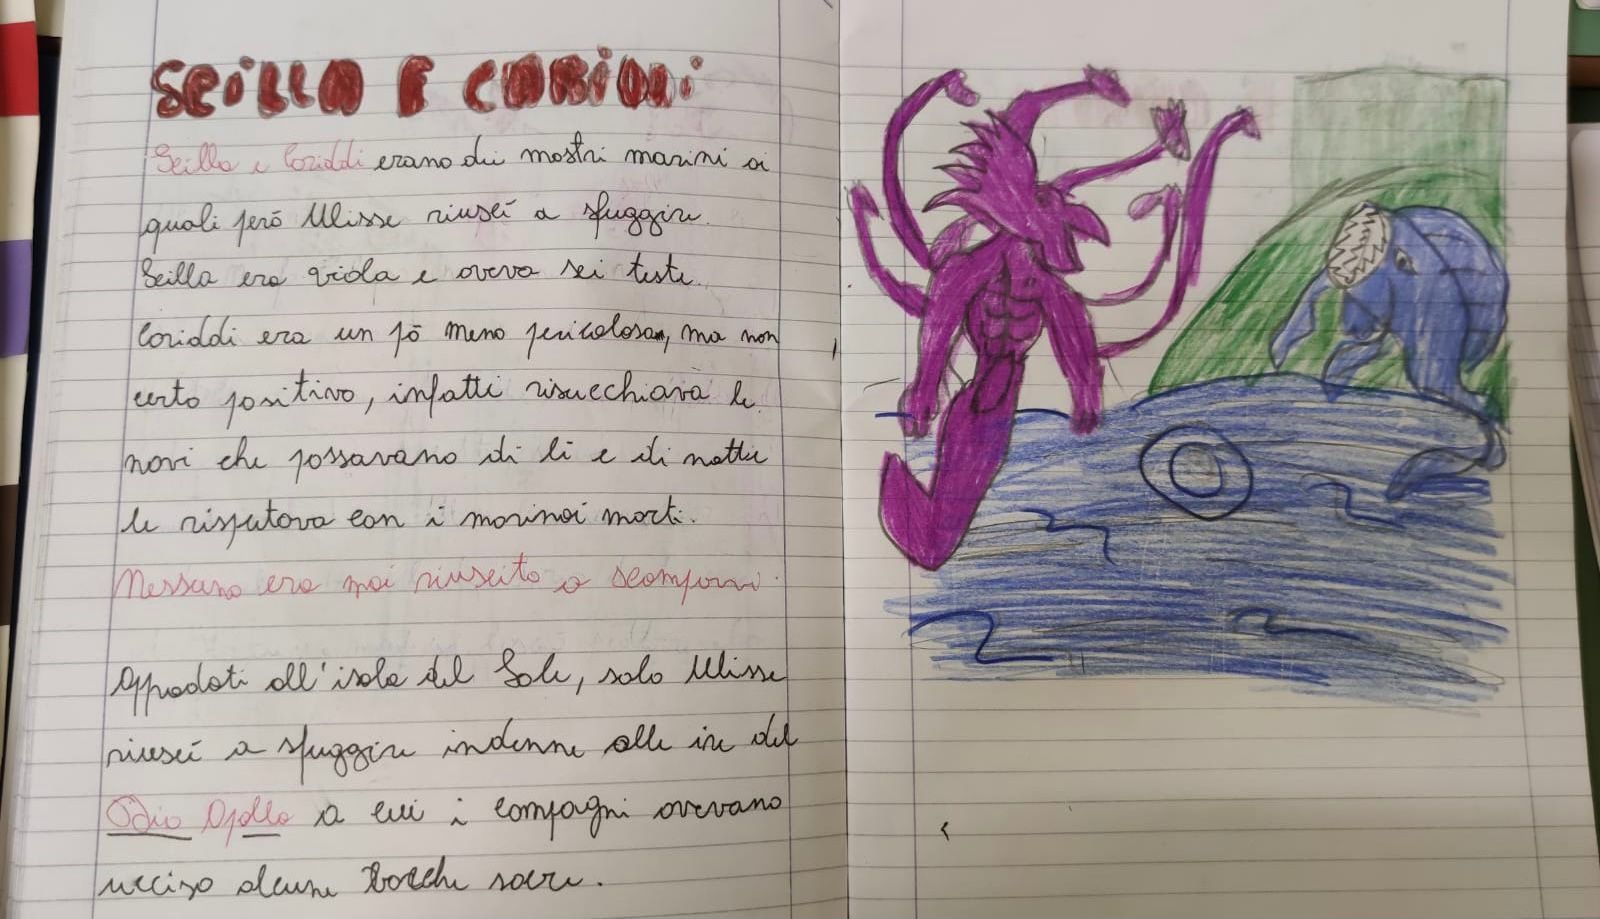 SCILLA E CARIDDI
Scilla e Cariddi erano dei mostri marini ai
quali però Ulisse riuscì a sfuggire.
Scilla era viola e aveva sei teste.
Cariddi era un pò meno pericolosa, ma non
certo positivo, infatti risucchiava le
navi che passavano di lì e di notte
le risputava con i marinai morti.
Nessuno era mai riuscito a scamparvi.
Appodati all'isola del Sole, solo Ulisse
riuscì a sfuggire indenne alle ire del
Odio Apollo a cui i compagni avevano
ucciso alcune vacche sacre.